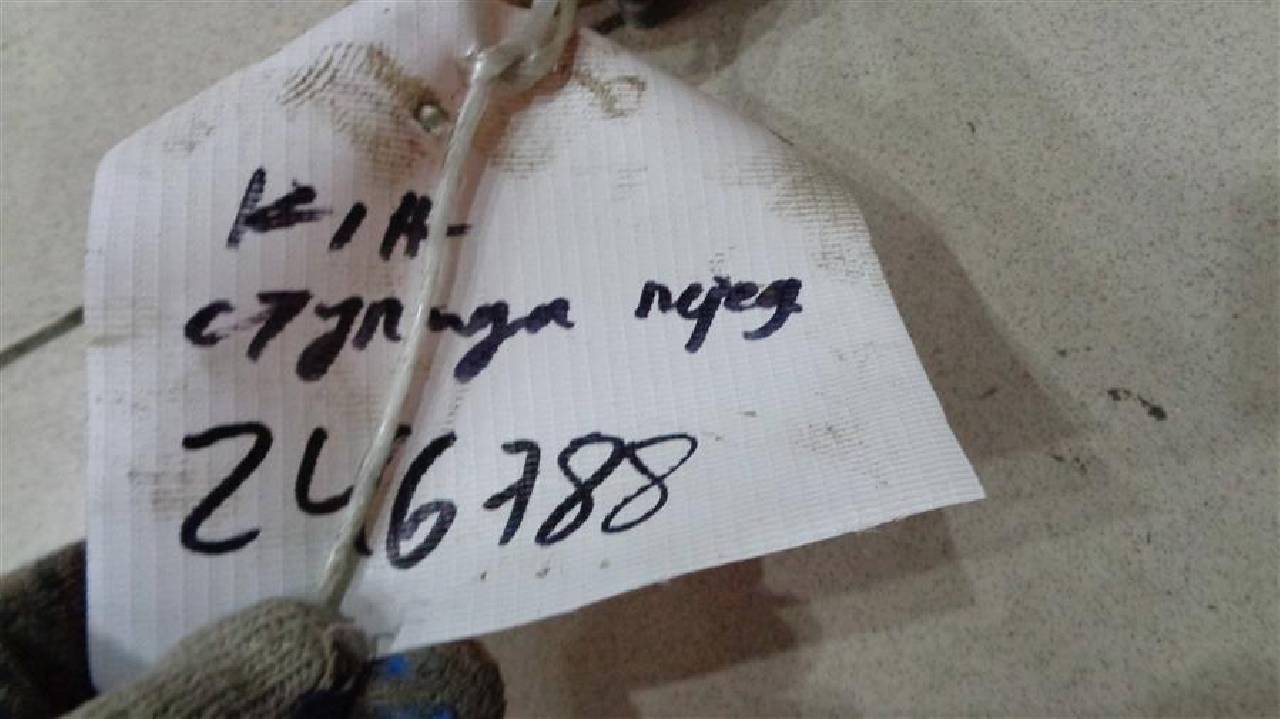 KIA-
ступица перед
246788